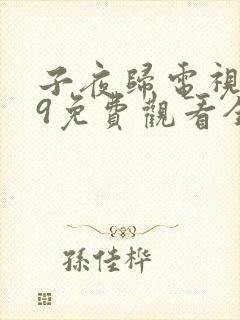 子夜歸電視
9免費觀看全
孫佳桦